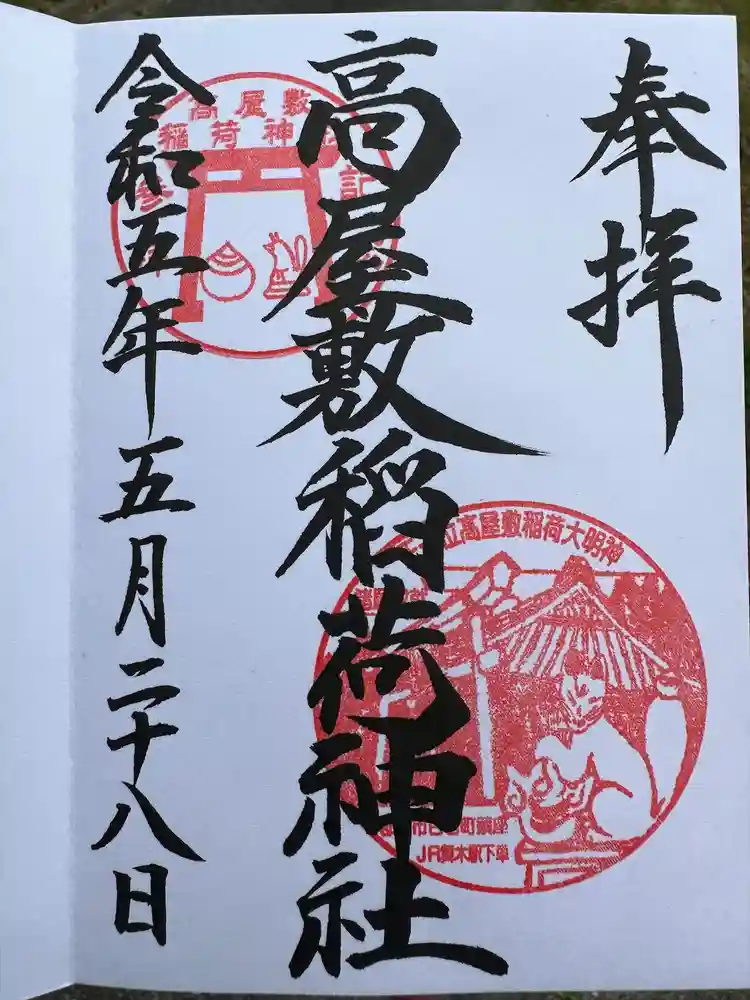 奉拝
高屋敷稲荷神社
令和五年五月二十八日
高屋敷
稲荷神社
参拝記
位高屋敷稲荷大明神
町鎮座
駅下車